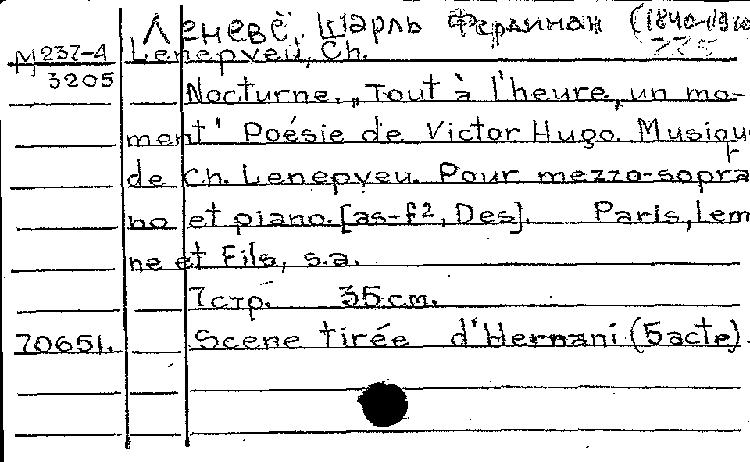 Леневё, Шарль Фердинан (1840-1910
М 237-4 Lenepveu, Ch.
3205
Nocturne. „Tout à l'heure, un mo-
ment" Poésie de Victor Hugo. Musiqu
de Ch. Lenepveu. Pour mezzo-sopra
no et piano. [as-f2, Des]. Paris, Lem
ne et Fils, s.a.
7 стр. 35 cm.
70651. Scene tirée d'Hernani (5 acte).